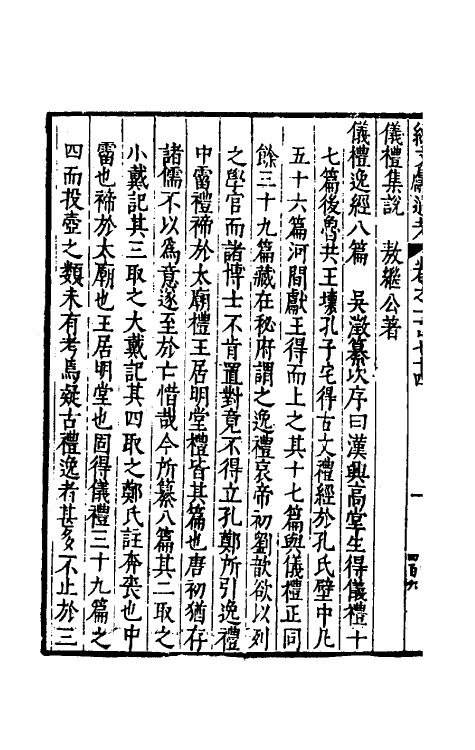 儀禮集說　敖繼公著
儀禮逸經八篇　吳澂纂次序曰漢興高堂生得儀禮十
七篇後魯共王壞孔子宅得古文禮經於孔氏壁中凡
五十六篇河間獻王得而上之其十七篇與儀禮正同
餘三十九篇藏在秘府謂之逸禮哀帝初劉歆欲以列
之學官而諸博士不肯置對竟不得立孔鄭所引逸禮
中霤禮禘於太廟禮王居明堂禮皆其篇也唐初猶存
諸儒不以為意遂至於亡惜哉今所纂八篇其二取之
小戴記其三取之大戴記其四取之鄭氏註奔喪也中
霤也禘於太廟也王居明堂也固得儀禮三十九篇之
四而投壺之類未有考焉疑古禮逸者甚多不止於三